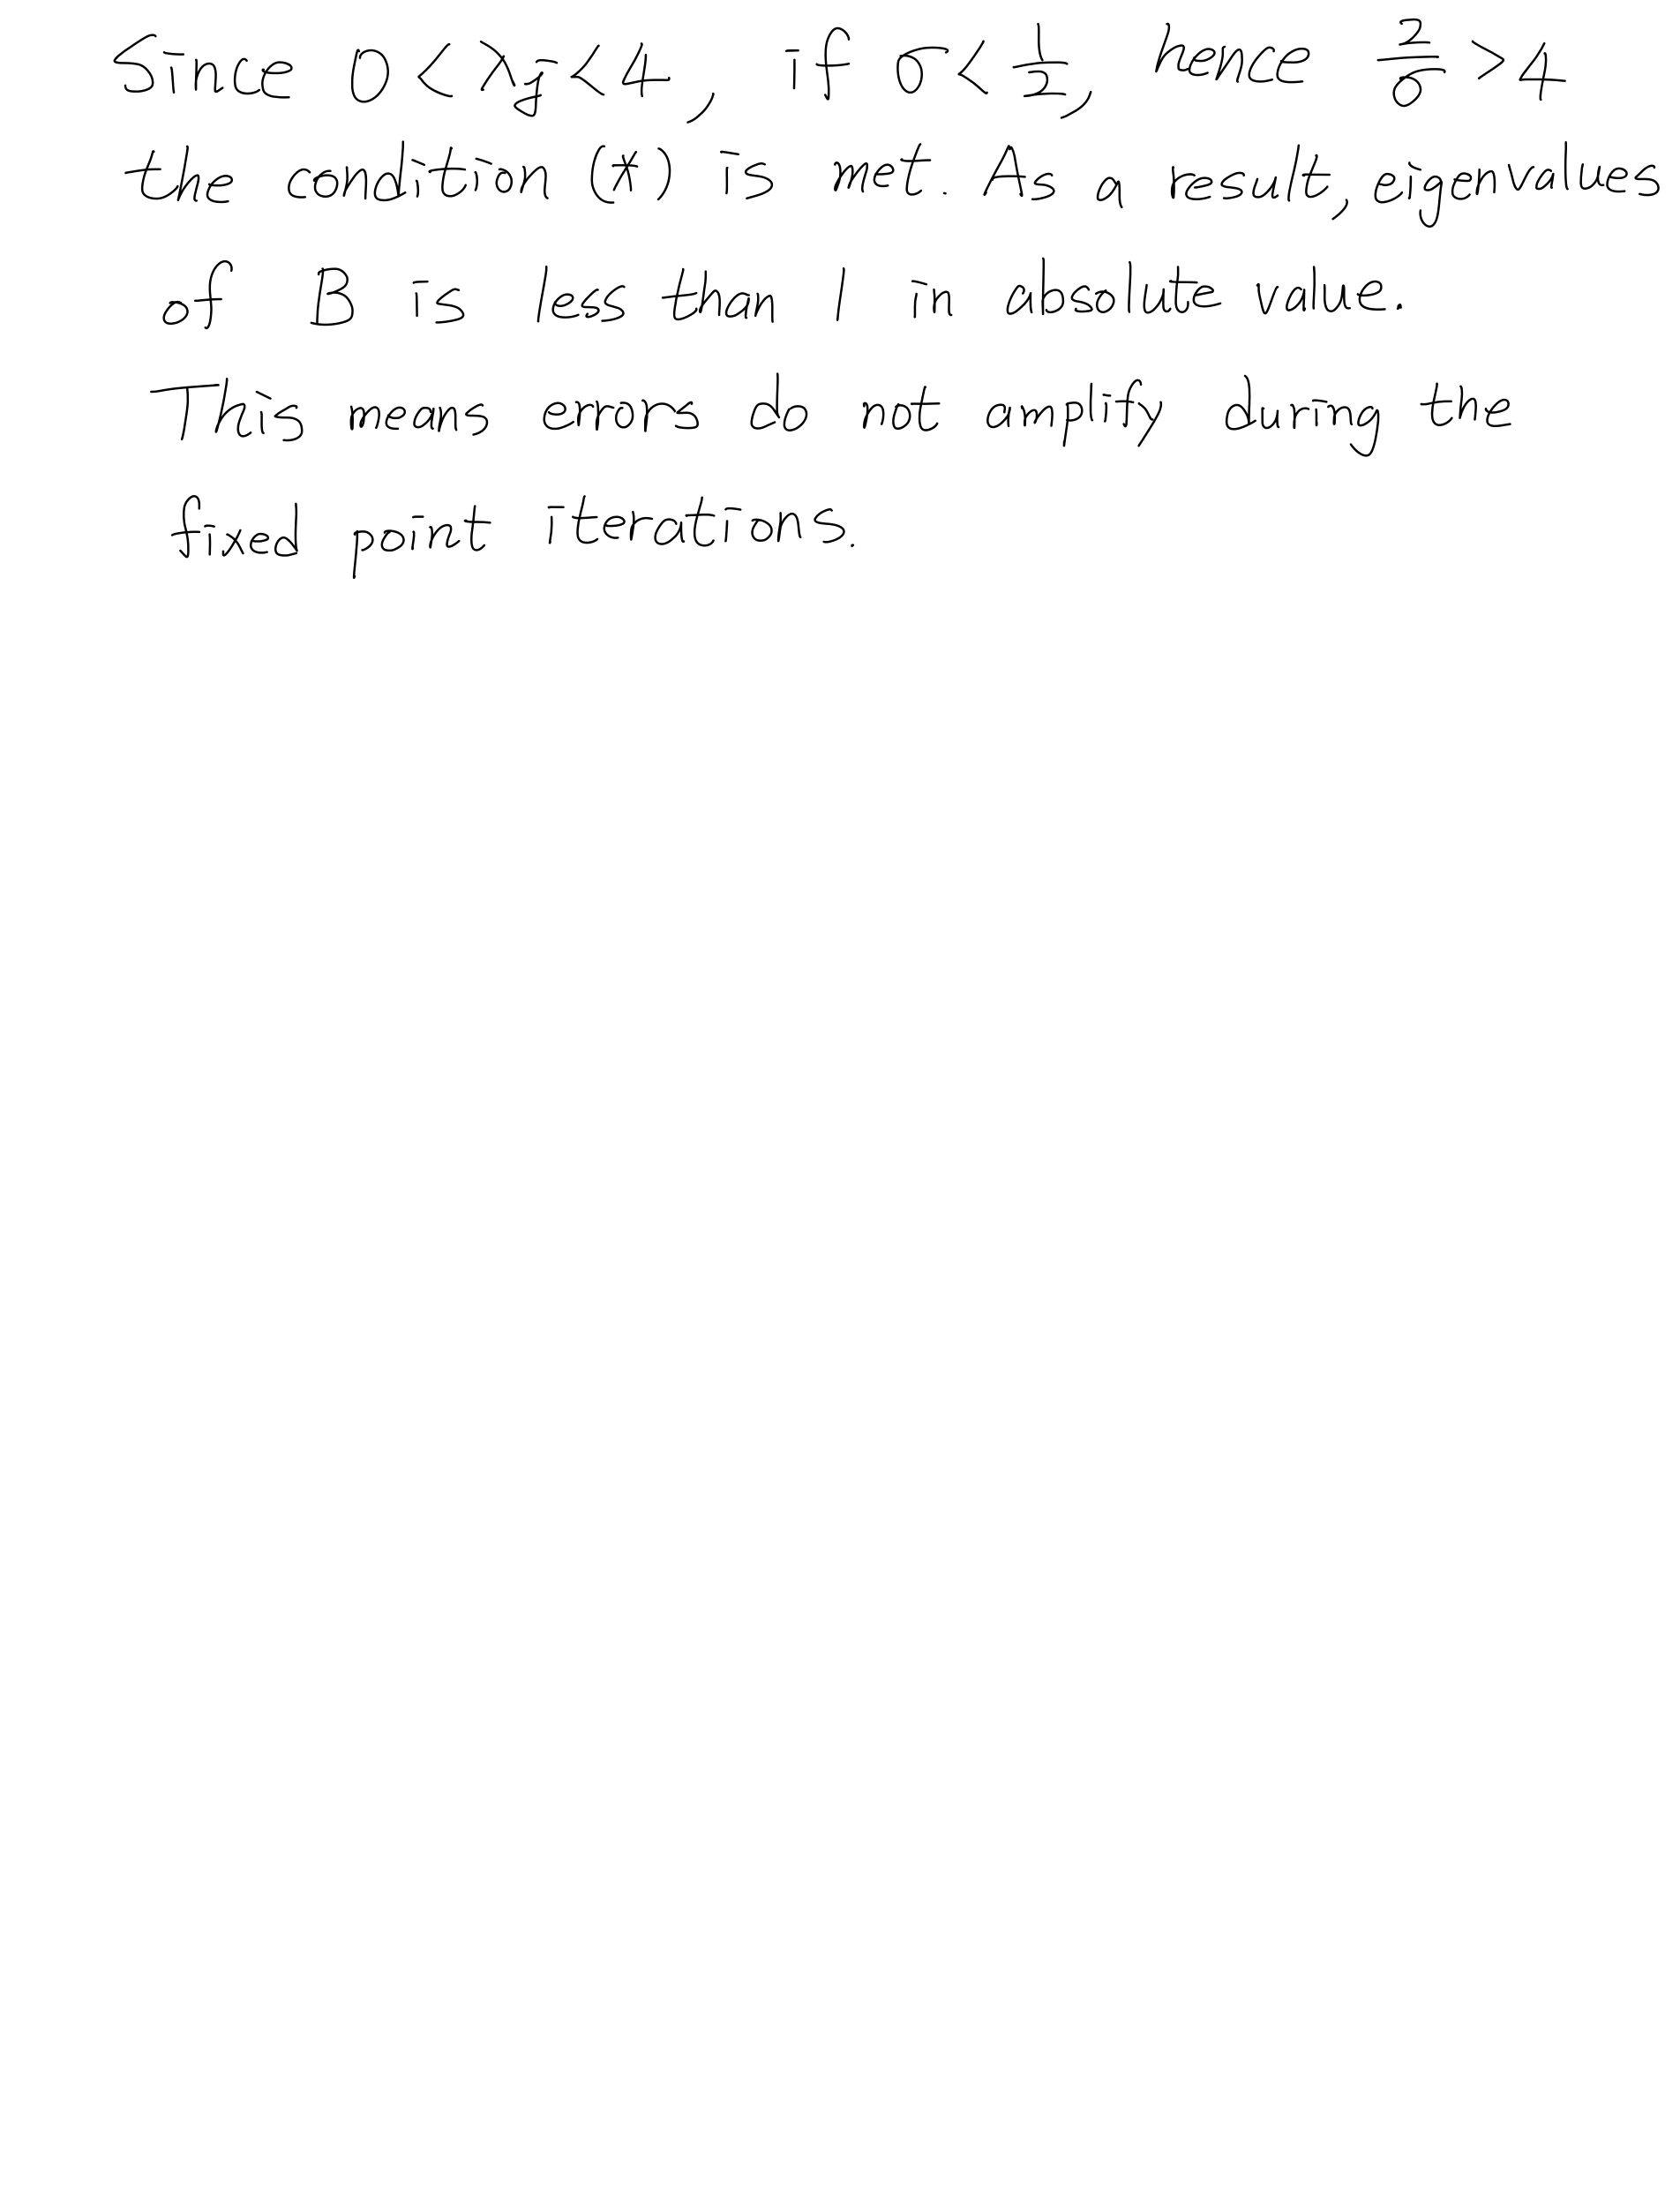 Since 0 < λj < 4, if σ < 1/2, hence 2/σ > 4
the condition (*) is met. As a result, eigenvalues
of B is less than 1 in absolute value.
This means errors do not amplify during the
fixed point iterations.